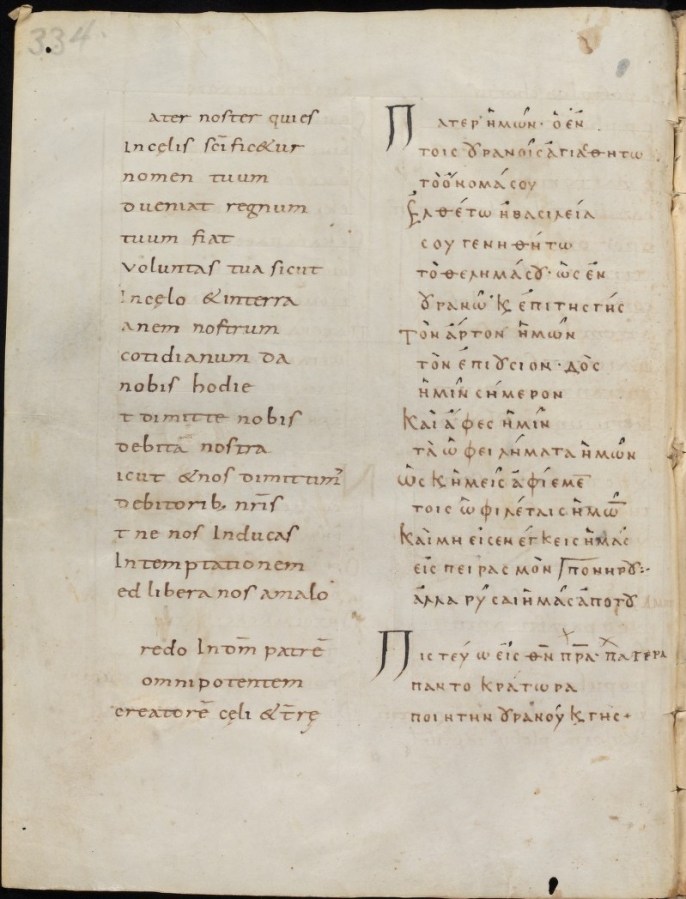 334
ater noster qui es
In cęlis sc̄ificetur
nomen tuum
dueniat regnum
tuum fiat
voluntas tua sicut
In cęlo & interra
anem nostrum
cotidianum da
nobis hodie
t dimitte nobis
debita nostra
icut & nos dimittim᾽
debitorib; nr̄is
t ne nos Inducas
In temptationem
ed libera nos amalo
redo In dm̄ patrē
omnipotentem
creatorē cęli & t̄rę
Πατερ ἡμῶν· ὁ ἐν
τοις ȣρανοῖς ἁγιασθητω
τὸ ὄνομά σου
Ἐλθέτω ἡ βασιλεία
σου γενηθήτω
τὸ θελημά σȣ· ὡς ἐν
ȣρανῶ ϗ ἐπι τῆς γῆς
Τὸν ἄρτον ἡμῶν
τὸν ἐπιȣσιον· δὸς
ἡμῖν σήμερον
Καὶ ἄφες ἡμῖν
τὰ ὠφειλήματα ἡμῶν
ὡς ϗ ἡμεῖς ἀφίεμε̄
τοις ὠφιλέταις ἡμῶ̄
Καὶ μη εἰσενέγκεις ἡμᾶς
εἰς πειρασμὸν πονηρȣ:·
ἀλλα ρῦσαι ἡμᾶς ἀπο τȣ
Πιστεύω εἰς θ̄ν̄ π̄ρ̄α· πατερα
παντοκρατωρα
ποιητην ȣρανοὺ ϗ γης·